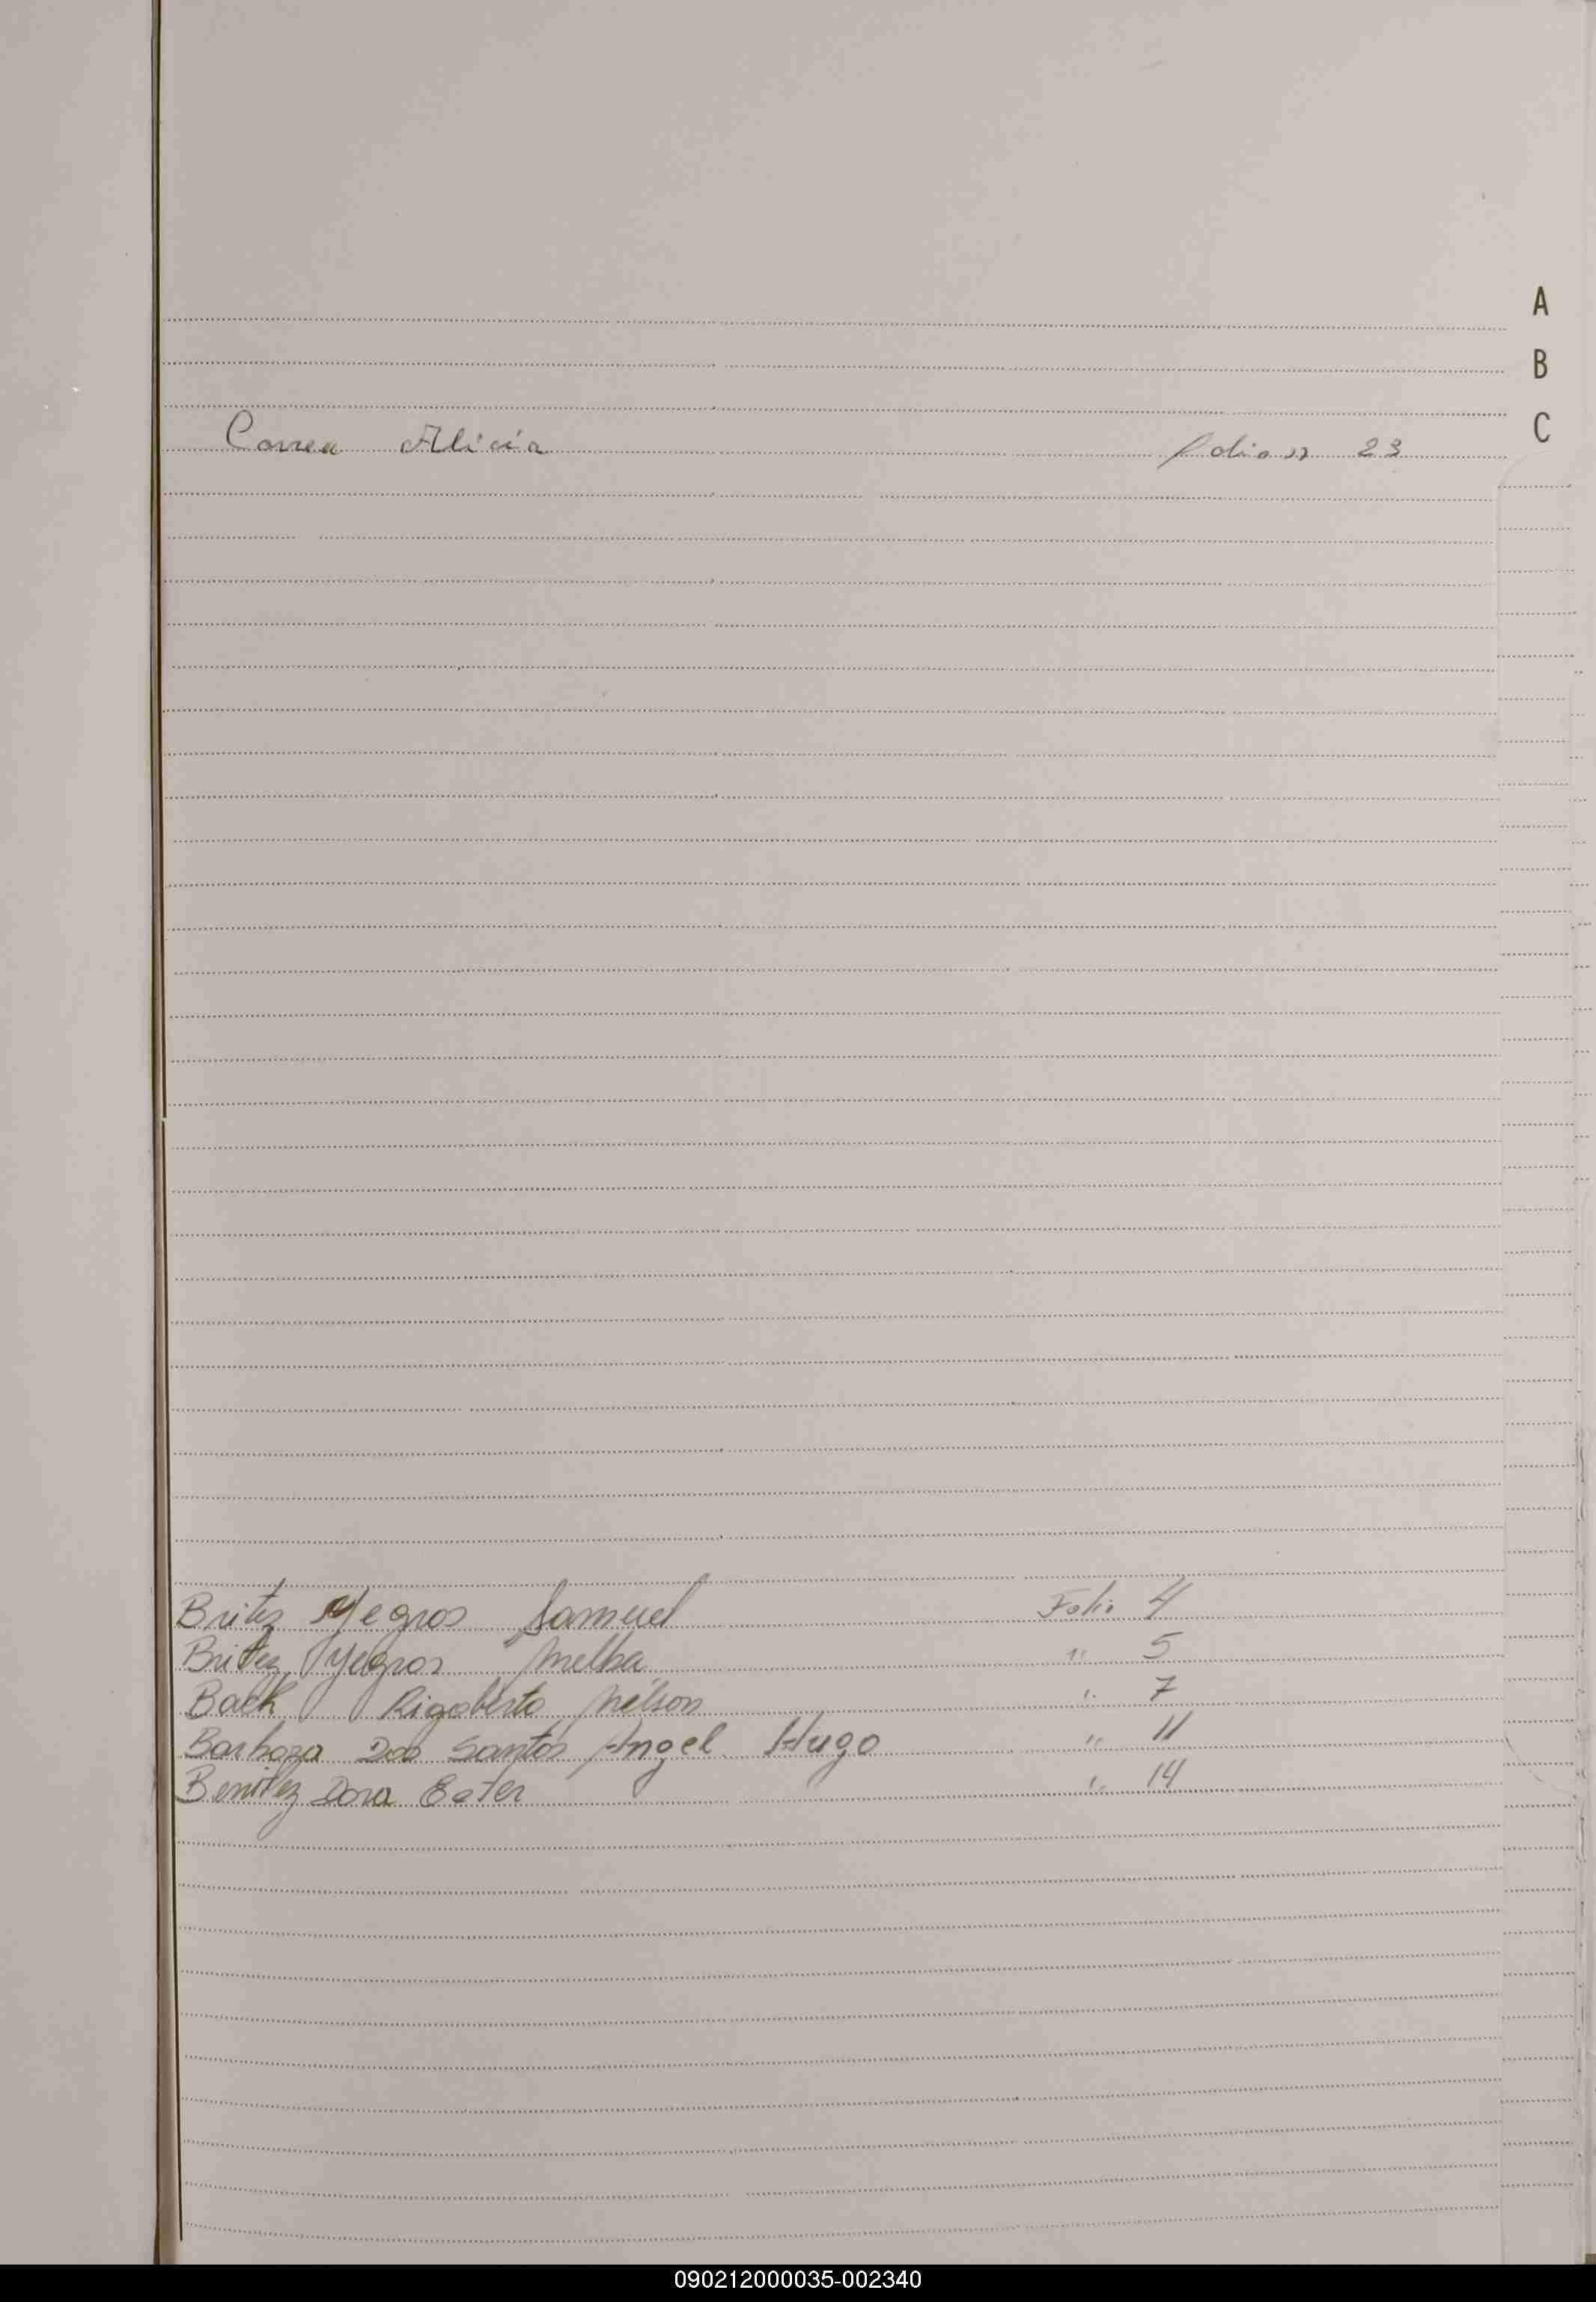 A
B
C
Correa Alicia folio n 23
Britez Yegros Samuel Folio 4
Britez Yegros Melba " 5
Back Rigoberto Nélson " 7
Barboza Dos Santos Angel Hugo " 11
Benitez Dora Ester " 14
090212000035-002340